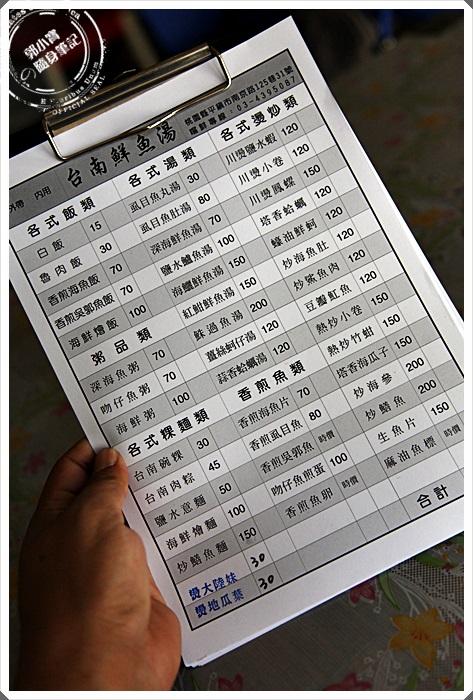 郭小寶
の隨身筆記
E Pluribus Unum
OFFICIAL SEAL
台南鮮魚湯
桃園縣平鎮市南京路125巷31號
03-4395087
外帶 內用
各式飯類
白飯 15
魯肉飯 30
香煎海魚飯 70
香煎吳郭魚飯 70
海鮮燴飯 100
粥品類
深海魚粥 70
吻仔魚粥 70
海鮮粥 100
各式粿麵類
台南碗粿 30
台南肉粽 45
鹽水意麵 50
海鮮燴麵 100
炒鱔魚麵 150
燙大陸妹 30
燙地瓜葉 30
各式湯類
虱目魚丸湯 30
虱目魚肚湯 80
深海鮮魚湯 70
鹽水鱸魚湯 100
海鱺鮮魚湯 150
紅魽鮮魚湯 150
鮢過魚湯 200
薑絲蚵仔湯 120
蒜香蛤蠣湯 120
香煎魚類
香煎海魚片 70
香煎虱目魚 80
香煎吳郭魚 時價
吻仔魚煎蛋 100
香煎魚卵 時價
各式燙炒類
川燙鹽水蝦 120
川燙小卷 120
川燙鳳螺 150
塔香蛤蠣 120
蠔油鮮蚵 120
炒海魚肚 120
炒鯊魚肉 120
豆瓣魟魚 120
熱炒小卷 150
熱炒竹蚶 150
塔香海瓜子 150
炒海參 200
炒鱔魚 200
生魚片 150
麻油魚膘 時價
合計